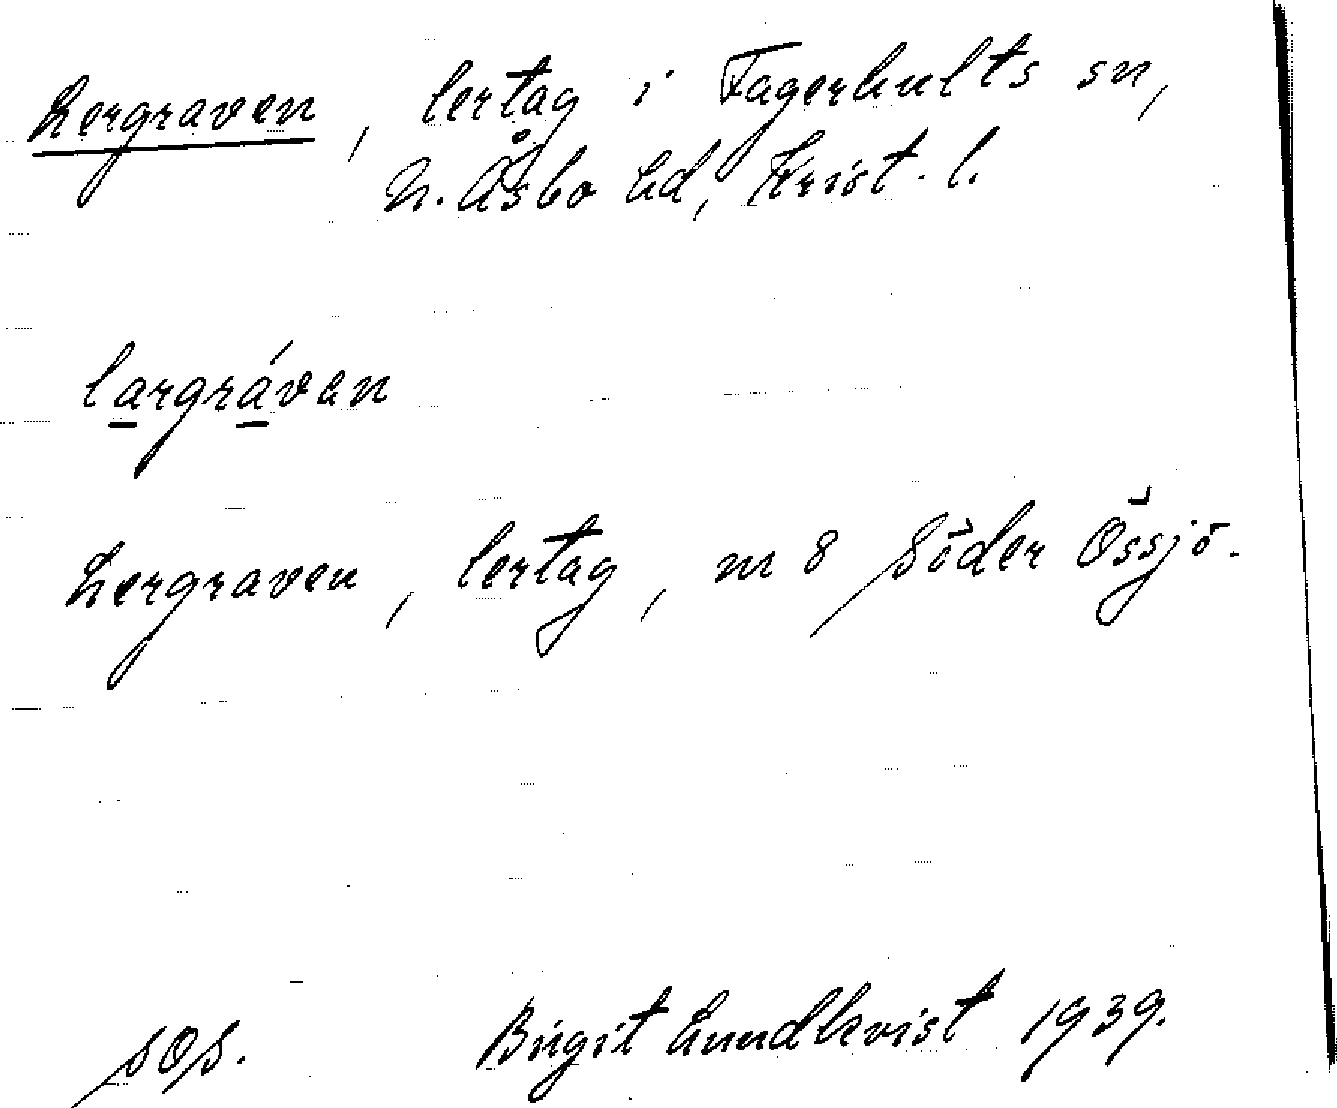 Lergraven, lertag i Fagerhults sn,
N. Åsbo hd, Krist. l.
largráven
Lergraven, lertag, m 8 Söder Össjö.
SOS. Birgit Lundkvist 1939.